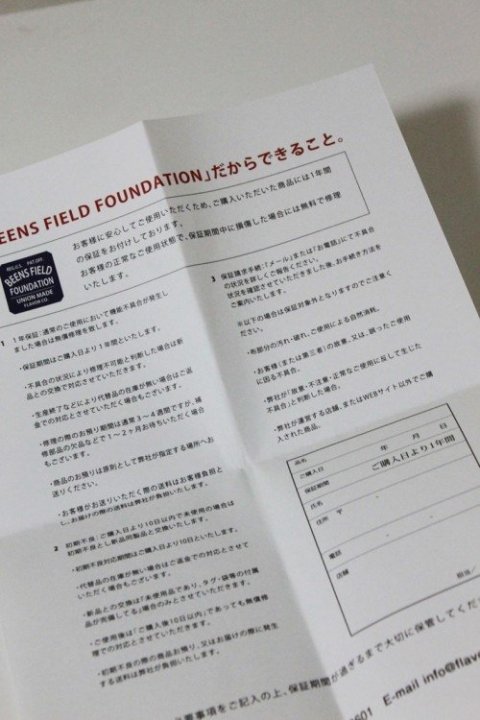 EENS FIELD FOUNDATION」だからできること。
REG.U.S. PAT.OFF.
BEENS FIELD
FOUNDATION
UNION MADE
FLAVOR CO.
お客様に安心してご使用いただくため、ご購入いただいた商品には1年間
の保証をお付けしております。
お客様の正常なご使用状態で、保証期間中に損傷した場合には無料で修理
いたします。
1 1年保証：通常のご使用において機能不具合が発生し
ました場合は無償修理を致します。
・保証期間はご購入日より1年間といたします。
・不具合の状況により修理不可能と判断した場合は新
品との交換で対応させていただきます。
・生産終了などにより代替品の在庫が無い場合はご返
金での対応とさせていただく場合もございます。
・修理の際のお預り期間は通常3～4週間ですが、補
修部品の欠品などで1～2ヶ月お待ちいただく場合
もございます。
・商品のお預りは原則として弊社が指定する場所へお
送りください。
・お客様がお送りいただく際の送料はお客様負担と
し、お届けの際の送料は弊社が負担いたします。
2 初期不良：ご購入日より10日以内で未使用の場合は
初期不良とし新品同製品と交換いたします。
・初期不良対応期間はご購入日より10日といたします。
・代替品の在庫が無い場合はご返金での対応とさせて
いただく場合もございます。
・新品との交換は「未使用品であり、タグ・袋等の付属
品が完備してる」場合のみとさせていただきます。
・ご使用後は「ご購入後10日以内」であっても無償修
理での対応とさせていただきます。
・初期不良の際の商品お預り、又はお届けの際に発生
する送料は弊社が負担いたします。
3 保証請求手続：「メール」または「お電話」にて不具合
の状況を詳しくご報告ください。
状況を確認させていただきました後、お手続き方法を
ご案内いたします。
※以下の場合は保証対象外となりますのでご注意く
ださい。
・布部分の汚れ・破れ、ご使用による自然消耗。
・お客様（または第三者）の故意、又は、誤ったご使用
に因る不具合。
・弊社が「故意・不注意・正常なご使用に反して生じた
不具合」と判断した場合。
・弊社が運営する店舗、またはWEBサイト以外でご購
入された商品。
品名
ご購入日 年 月 日
保証期間 ご購入日より1年間
氏名
住所 〒
電話
店舗 担当／
要事項をご記入の上、保証期間が過ぎるまで大切に保管してくだ
0601 E-mail info@flav